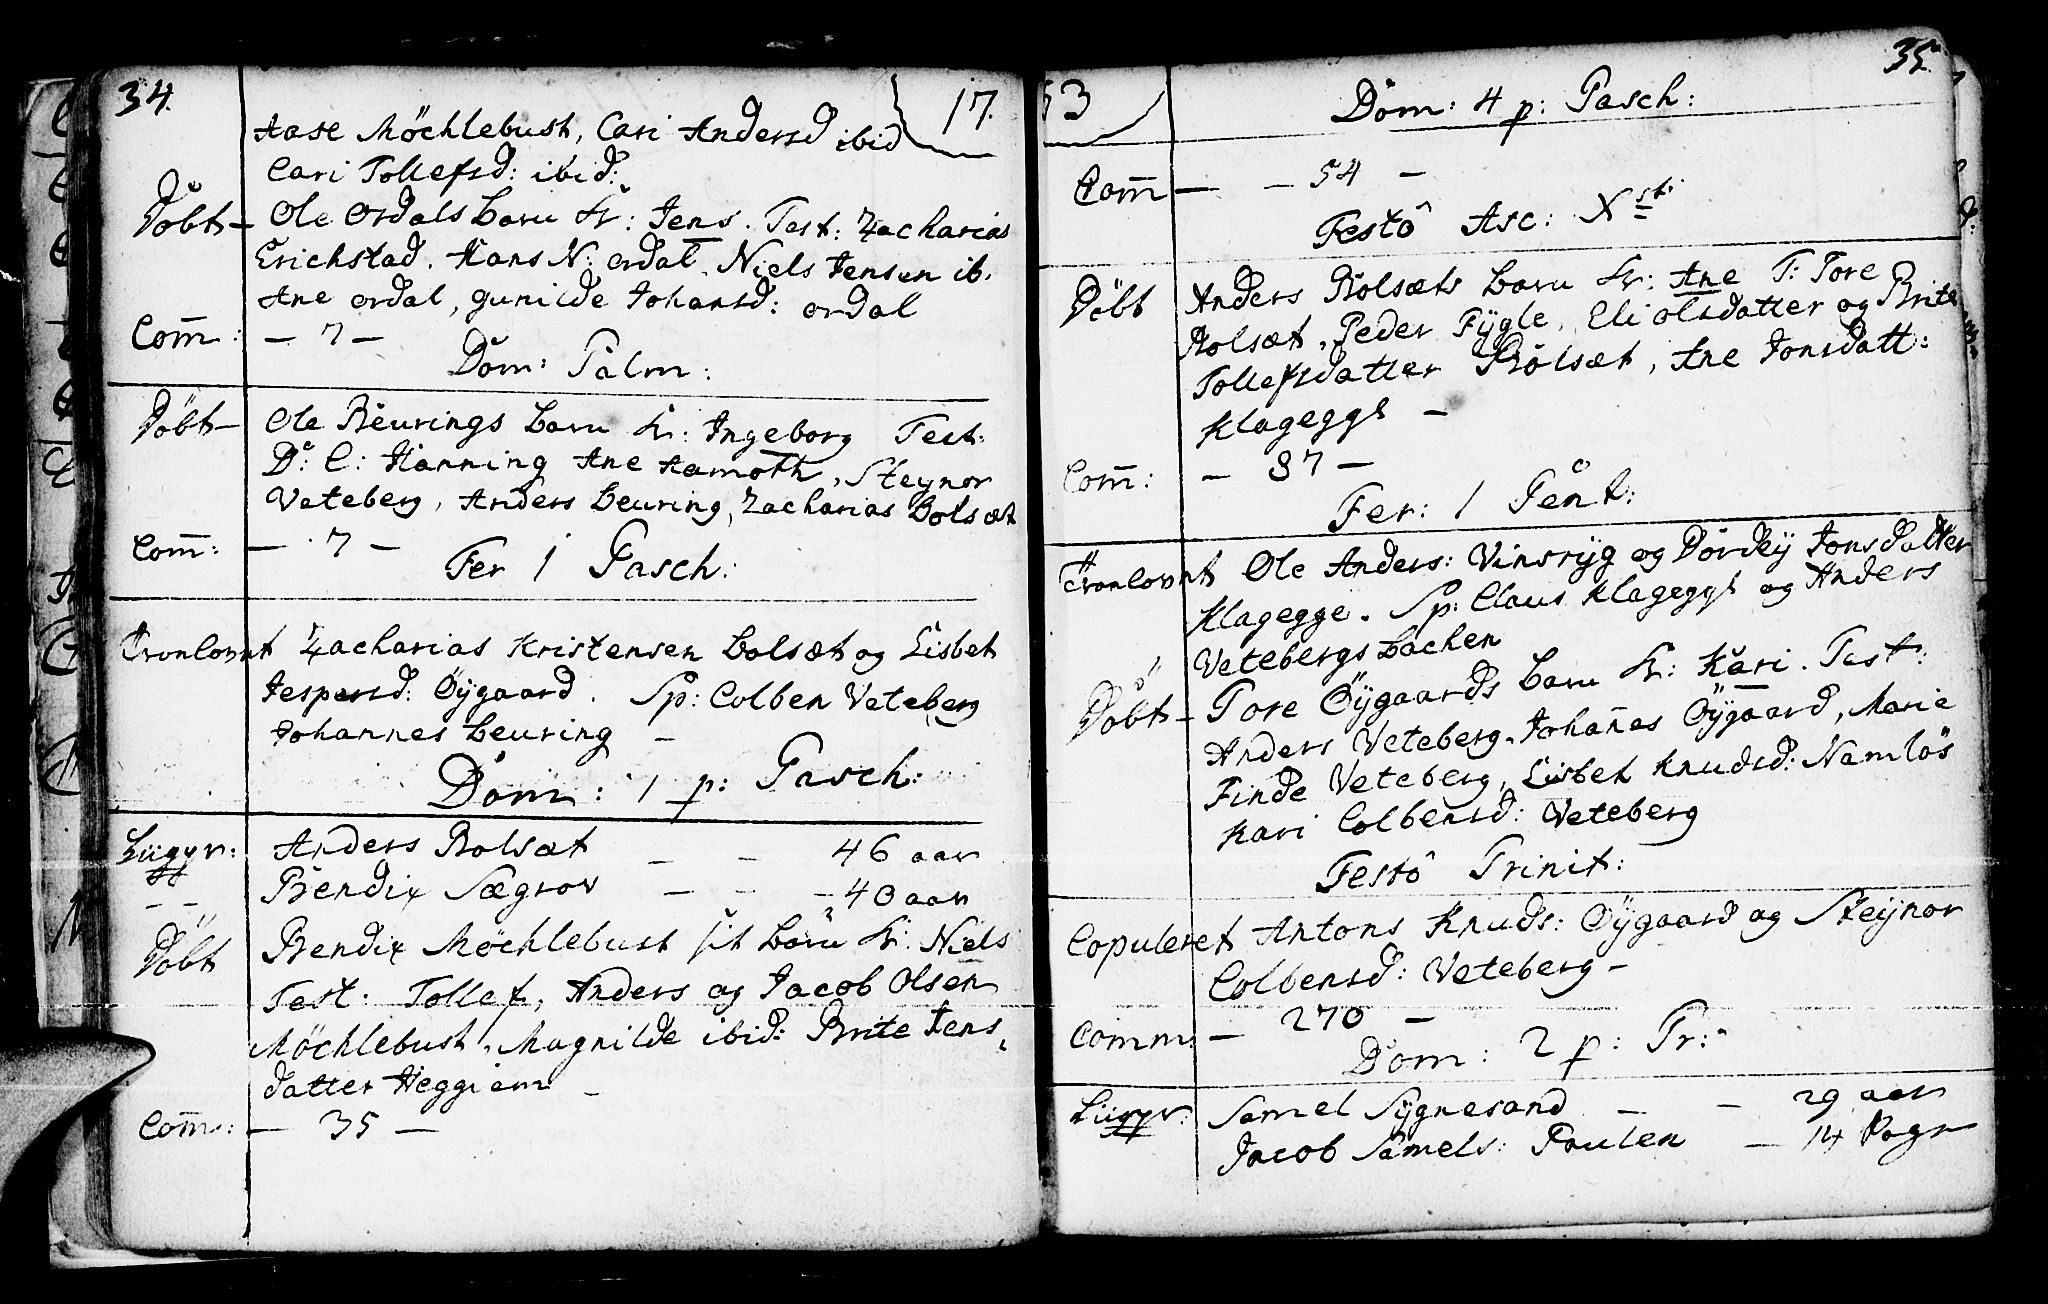 34.
17.
Aase Möchlebust, Cari Andersd ibid
Cari Tollefsd: ibid:
Döbt- Ole Ordals barn k: Jens. Test: Zacharias
Erichstad. Hans N: ordal. Niels Jensen ib.
Ane ordal, gunilde Johansd: ordal
Com̄: - 7 -
Dom: Palm:
Döbt- Ole Beurings barn k: Ingeborg Test:
D: C: Hanning Ane Aamoth, Steynor
Veteberg, Anders beuring, Zacharias Bolsæt
Com̄: - 7 -
Fer 1 Pasch:
Tronlovnt Zacharias Kristensen bolsæt og Lisbet
Jespersd: Öygaard. Sp: Colben Veteberg
Johannes beuring -
Dom: 1 p: Pasch:
Liigpr: Anders Bolsæt - - 46 aar
- - Bendix Sægrov - - - 40 aar
Döbt Bendix Möchlebust sit barn k: Niels
Test: Tollef, Anders og Jacob Olsen
Möchlebust, Magnilde ibid: Brite Jens,
datter Heggiem -
Com̄: - 35 -
53
35.
Dom: 4 p: Pasch:
Com̄ - - 54 -
Festô Asc: X sti
Döbt Anders Bolsæts barn k: Ane T: Tore
Bolsæt, Peder Fygle, Eli olsdatter og Brite
Tollefsdatter Bolsæt, Ane Jonsdatt:
Klageggs -
Com̄: - 37 -
Fer: 1 Pent:
Tronlovnt Ole Anders: Vinsryg og Dordey Jonsdatter
Klagegge. Sp: Claus Klageggs og Anders
Vetebergs bachen
Döbt- Tore Öygaards barn k: Kari. Test:
Anders Veteberg, Johan̄as Öygaard, Marie
Finde Veteberg, Lisbet Knudsd: Namlös
Kari Colbensd: Veteberg
Festô Trinit:
Copuleret Antons Knuds: Öygaard og Steynor
Colbensd: Veteberg -
Comm: - 270 -
Dom: 2 p: Tr:
Liigpr: Samel Sygnesand - - 29 aar
Jacob Samels: Paulen - 14 Dagr